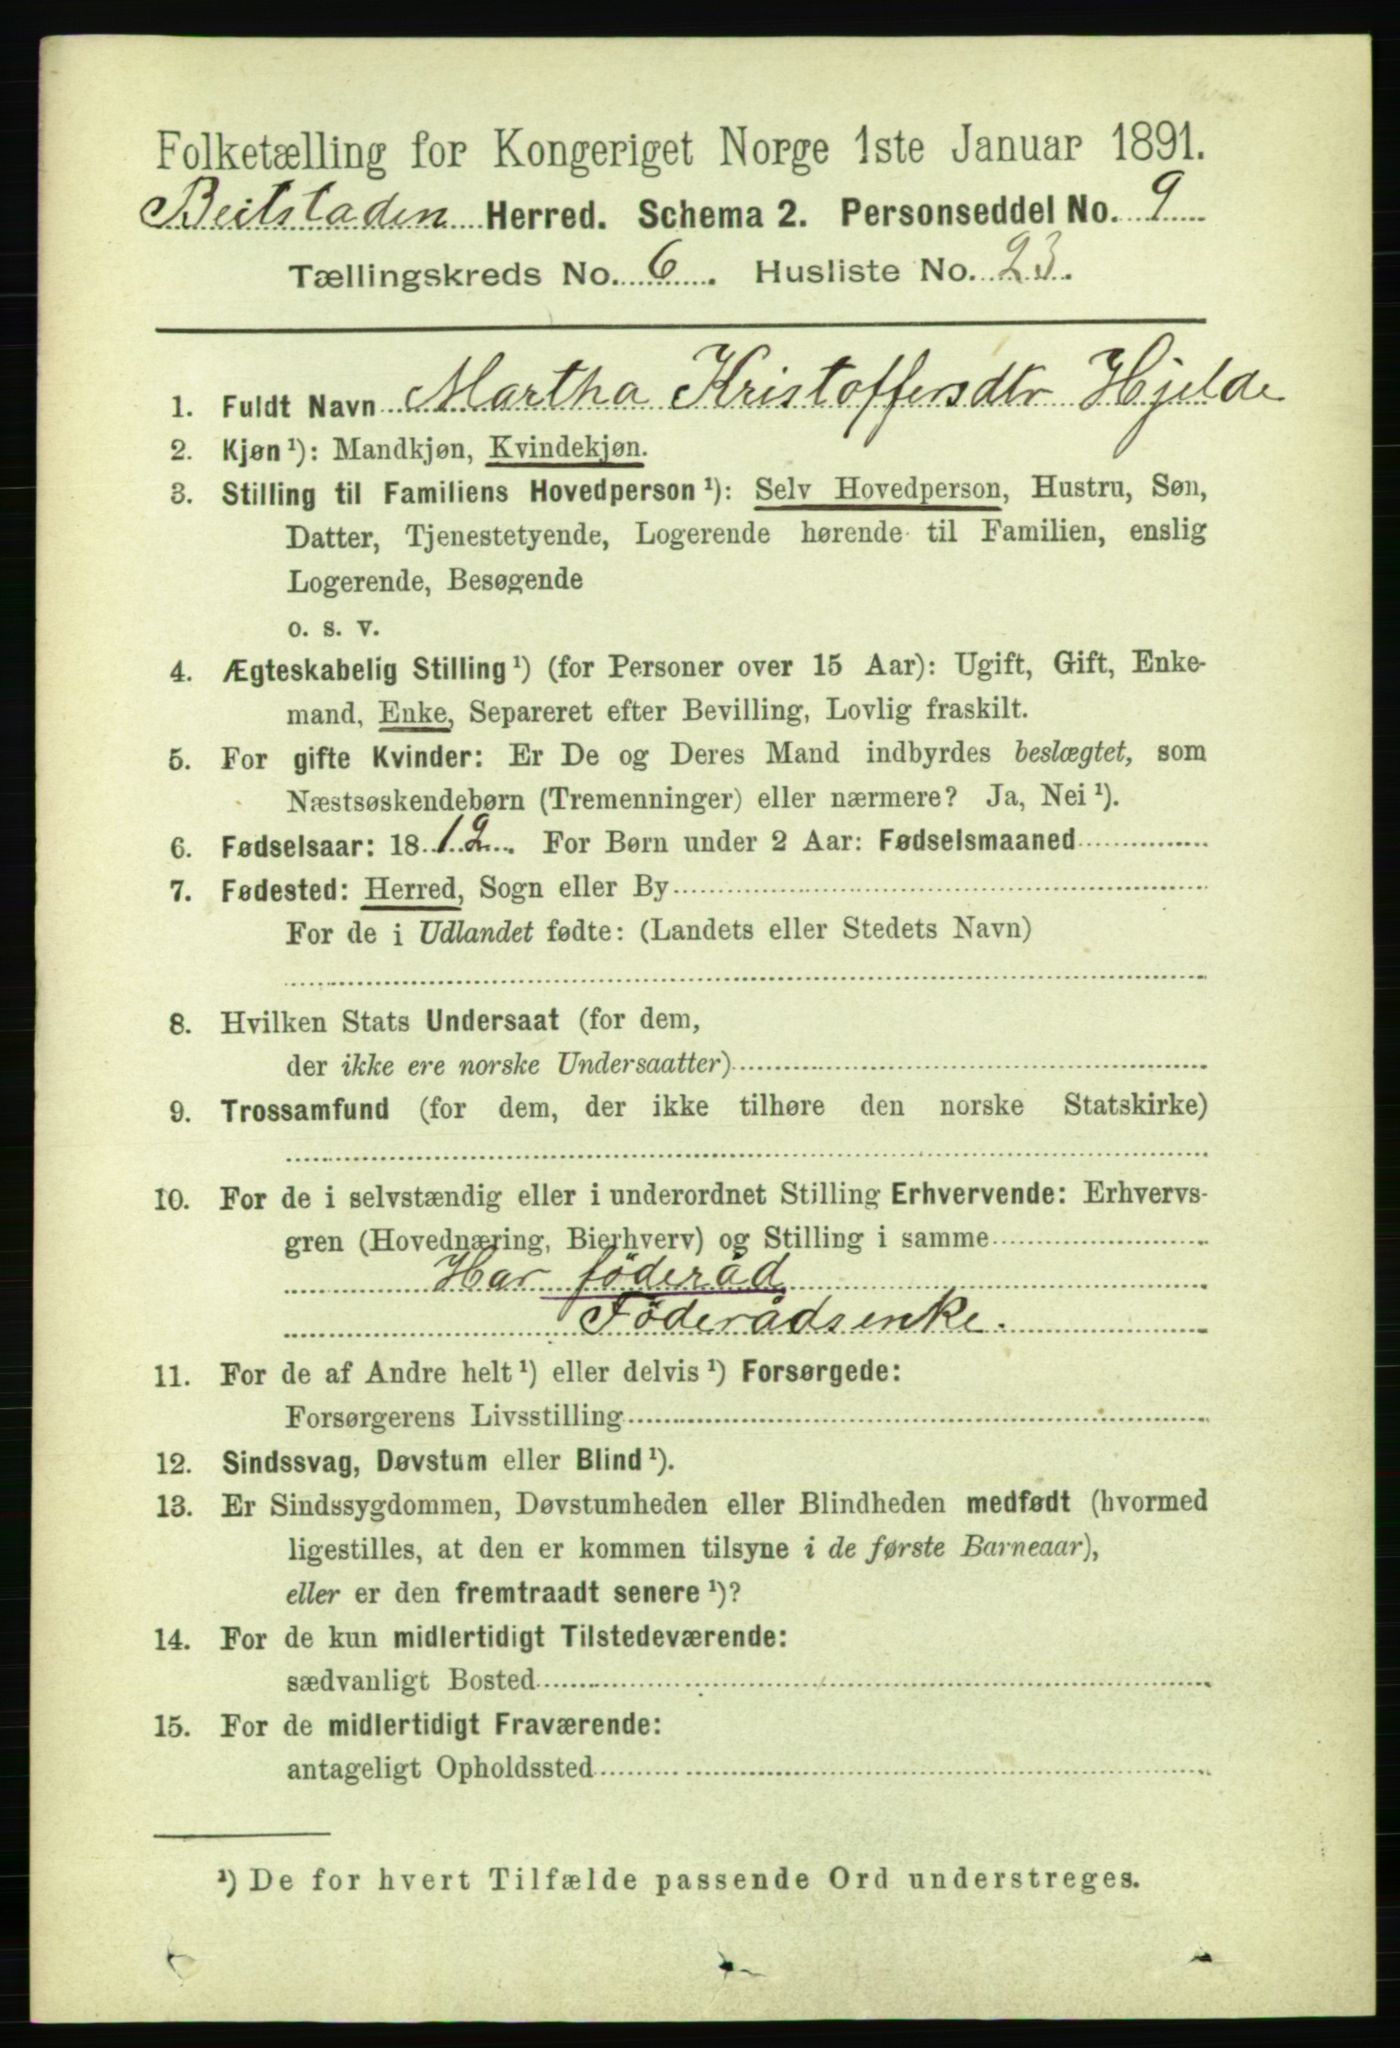 Folketælling for Kongeriget Norge 1ste Januar 1891.
Beitstaden Herred. Schema 2. Personseddel No. 9
Tællingskreds No. 6. Husliste No. 23.
1. Fuldt Navn Martha Kristoffersdtr Hjelde
2. Kjøn¹): Mandkjøn, Kvindekjøn.
3. Stilling til Familiens Hovedperson¹): Selv Hovedperson, Hustru, Søn,
Datter, Tjenestetyende, Logerende hørende til Familien, enslig
Logerende, Besøgende
o. s. v.
4. Ægteskabelig Stilling¹) (for Personer over 15 Aar): Ugift, Gift, Enke-
mand, Enke, Separeret efter Bevilling, Lovlig fraskilt.
5. For gifte Kvinder: Er De og Deres Mand indbyrdes beslægtet, som
Næstsøskendebørn (Tremenninger) eller nærmere? Ja, Nei¹).
6. Fødselsaar: 1812. For Børn under 2 Aar: Fødselsmaaned
7. Fødested: Herred, Sogn eller By
For de i Udlandet fødte: (Landets eller Stedets Navn)
8. Hvilken Stats Undersaat (for dem,
der ikke ere norske Undersaatter)
9. Trossamfund (for dem, der ikke tilhøre den norske Statskirke)
10. For de i selvstændig eller i underordnet Stilling Erhvervende: Erhvervs-
gren (Hovednæring, Bierhverv) og Stilling i samme
Har föderåd
Föderådsenke.
11. For de af Andre helt¹) eller delvis¹) Forsørgede:
Forsørgerens Livsstilling
12. Sindssvag, Døvstum eller Blind¹).
13. Er Sindssygdommen, Døvstumheden eller Blindheden medfødt (hvormed
ligestilles, at den er kommen tilsyne i de første Barneaar),
eller er den fremtraadt senere¹)?
14. For de kun midlertidigt Tilstedeværende:
sædvanligt Bosted
15. For de midlertidigt Fraværende:
antageligt Opholdssted
¹) De for hvert Tilfælde passende Ord understreges.